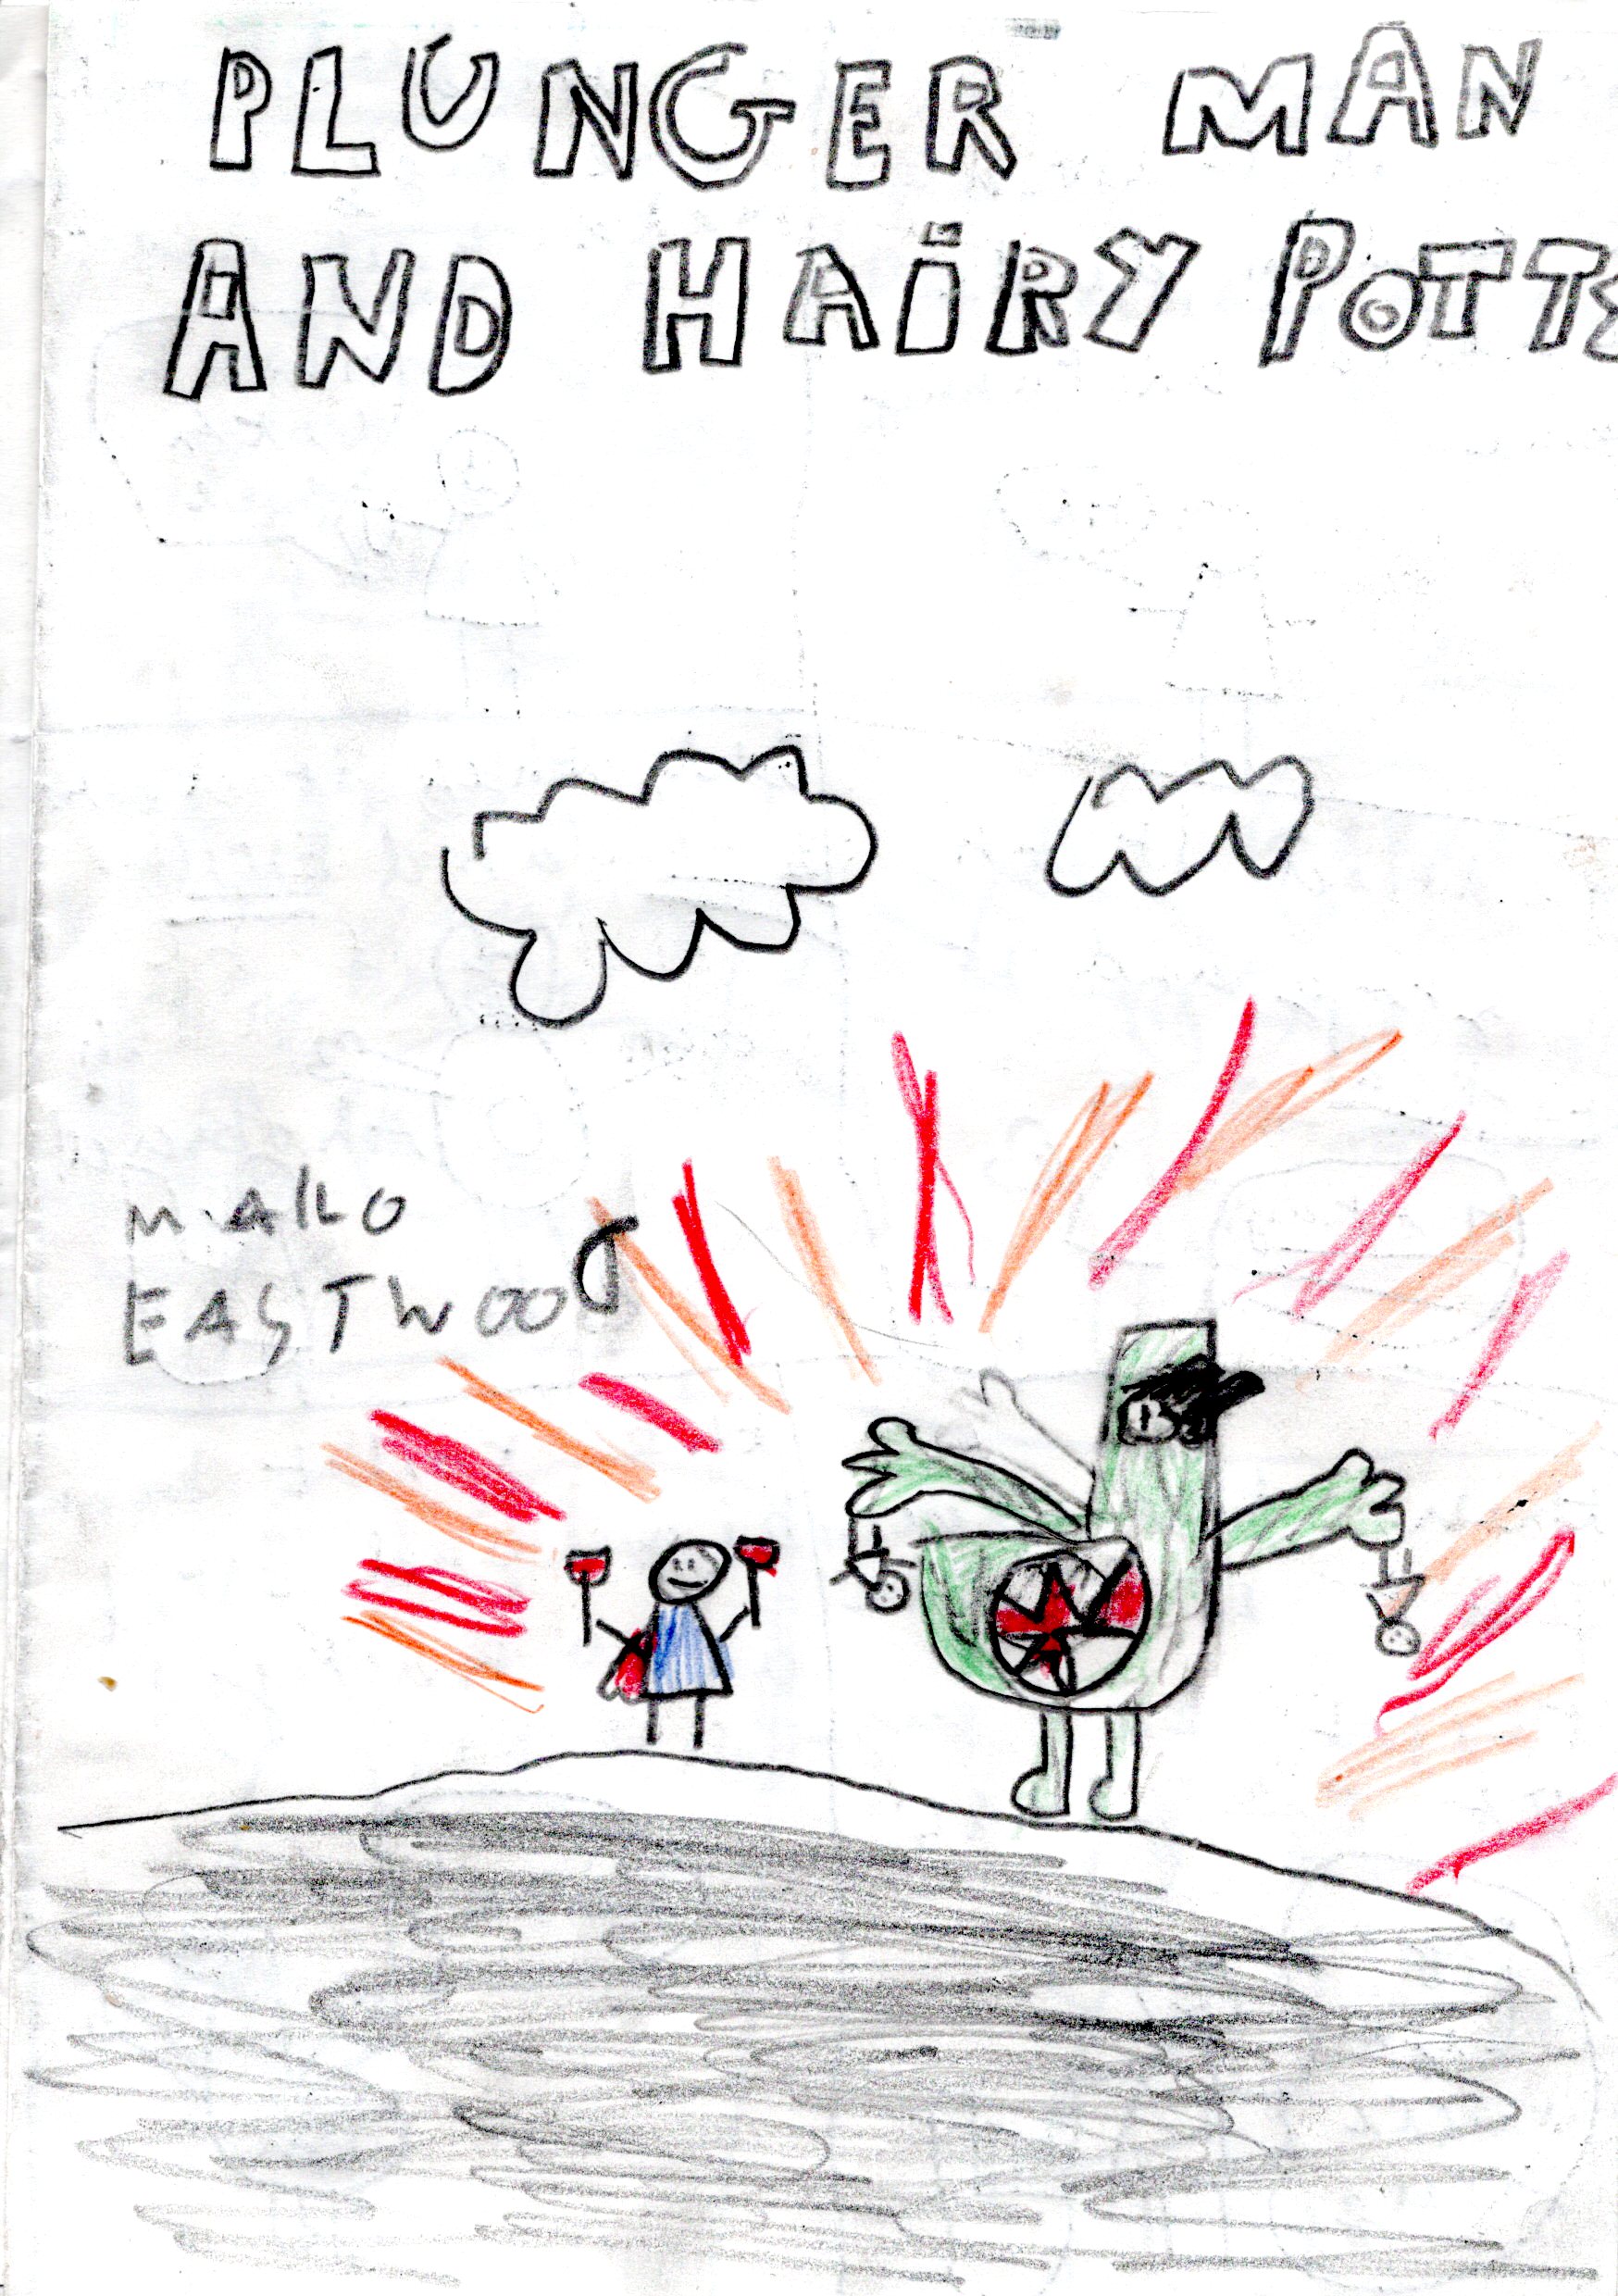 PLUNGER MAN
AND HAiRY POTTS
EASTWOOd